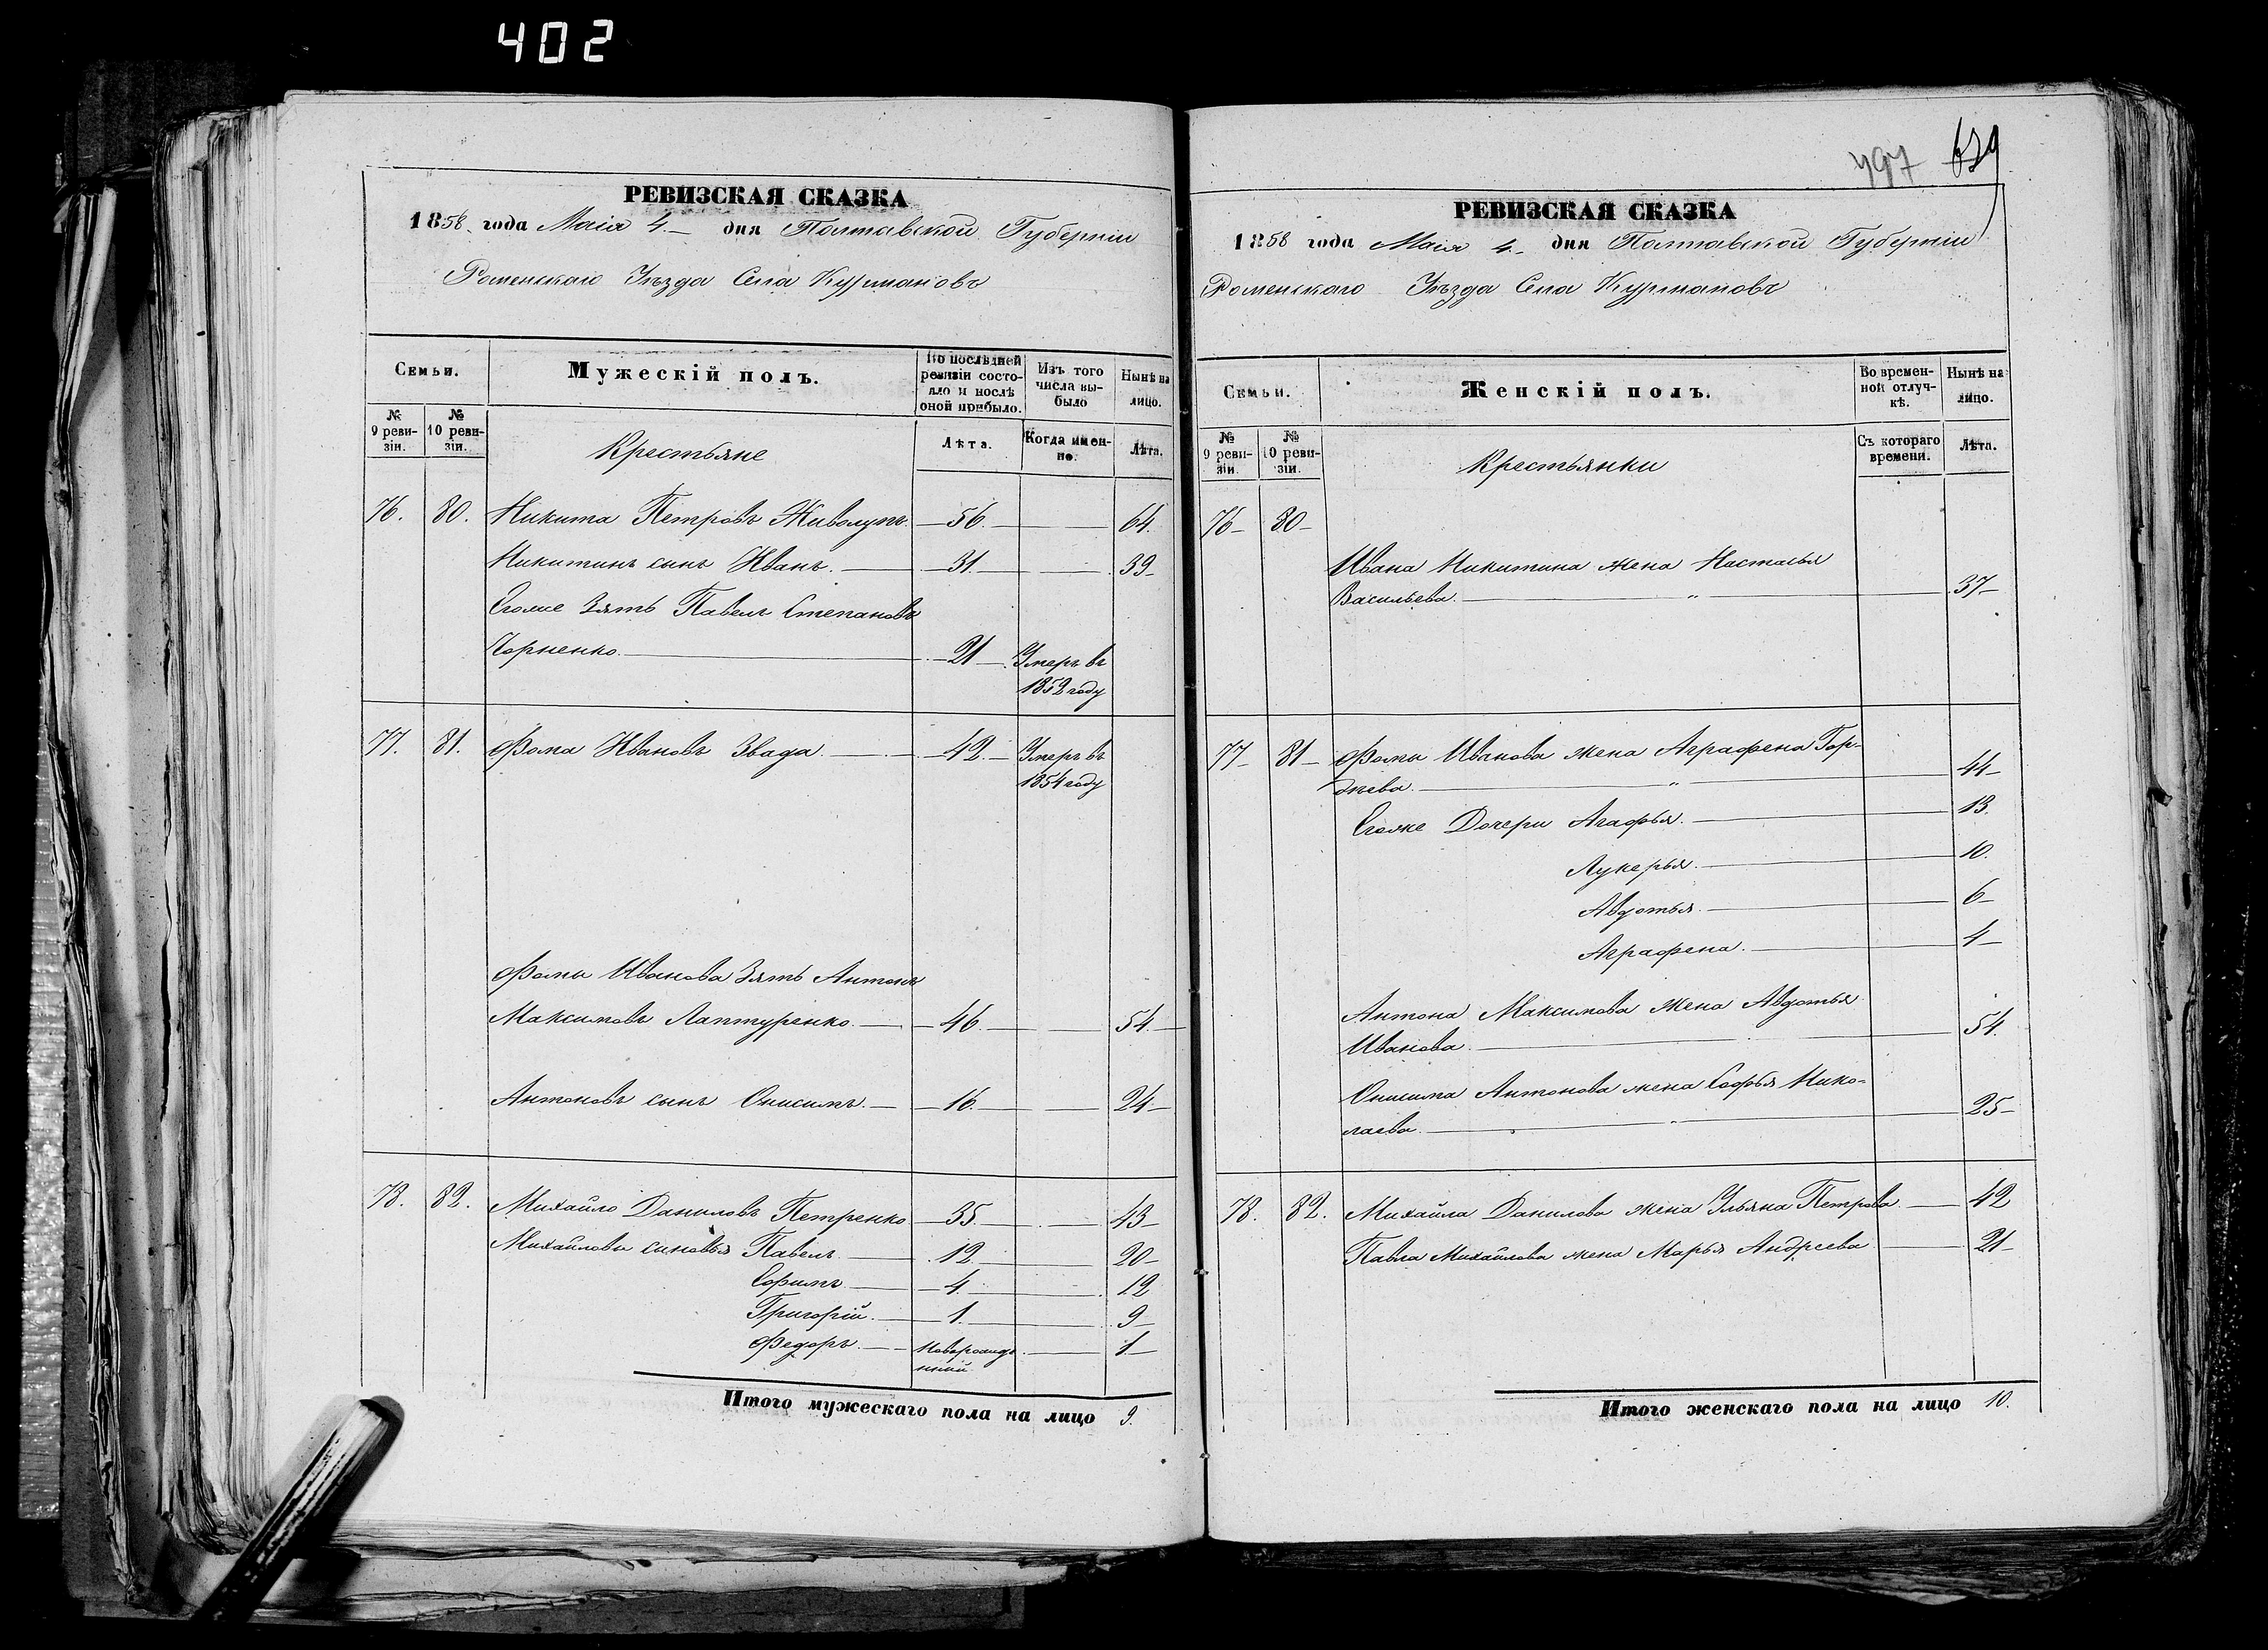 402
РЕВИЗСКАЯ СКАЗКА
1858 года Маія 4.— дня Полтавской Губерніи
Роменскаго Уѣзда Села Курмановъ
Семьи.
Мужескій полъ.
По послѣдней ревизіи состояло и послѣ оной прибыло.
Изъ того числа выбыло
Нынѣ на лицо.
№ 9 ревизіи.
№ 10 ревизіи.
Крестьяне
Лѣта.
Когда именно.
Лѣта.
76. 80. Никита Петровъ Живолупъ. — 56. — 64.
Никитинъ сынъ Иванъ. — 31. — 39—
Егоже Зять Павелъ Степановъ
Чорненко. — 21 — Умеръ въ
1852 году
77. 81. Фома Ивановъ Звада. — 42. — Умеръ въ
1854 году
Фомы Иванова Зять Антонъ
Максимовъ Лаптуренко. — 46. — 54.—
Антоновъ сынъ Онисимъ. — 16. — 24—
78. 82. Михайло Даниловъ Петренко — 35. — 43—
Михайловы сыновья Павелъ. — 12. — 20—
Ефимъ — 4. — 12
Григорій. — 1. — 9—
Федоръ. — Новорожденный — 1.—
Итого мужескаго пола на лицо 9.
497 639
РЕВИЗСКАЯ СКАЗКА
1858 года Маія 4.— дня Полтавской Губерніи
Роменскаго Уѣзда Села Курмановъ
Семьи.
Женскій полъ.
Во временной отлучкѣ.
Нынѣ на лицо.
№ 9 ревизіи.
№ 10 ревизіи.
Крестьянки
Съ котораго времени.
Лѣта.
76— 80—
Ивана Никитина жена Настасья
Васильева. — „ — 37—
77— 81— Фомы Иванова жена Аграфена Гор-
дѣева. — „ — 44—
Егоже Дочери Агафья. — 13.
Лукерья. — 10.
Авдотья. — 6—
Аграфена. — 4—
Антона Максимова жена Авдотья
Иванова. — 54.
Онисима Антонова жена Софья Нико=
лаева. — „ — 25—
78. 82. Михайла Данилова жена Ульяна Петрова — 42
Павла Михайлова жена Марья Андреева — 21—
Итого женскаго пола на лицо 10.